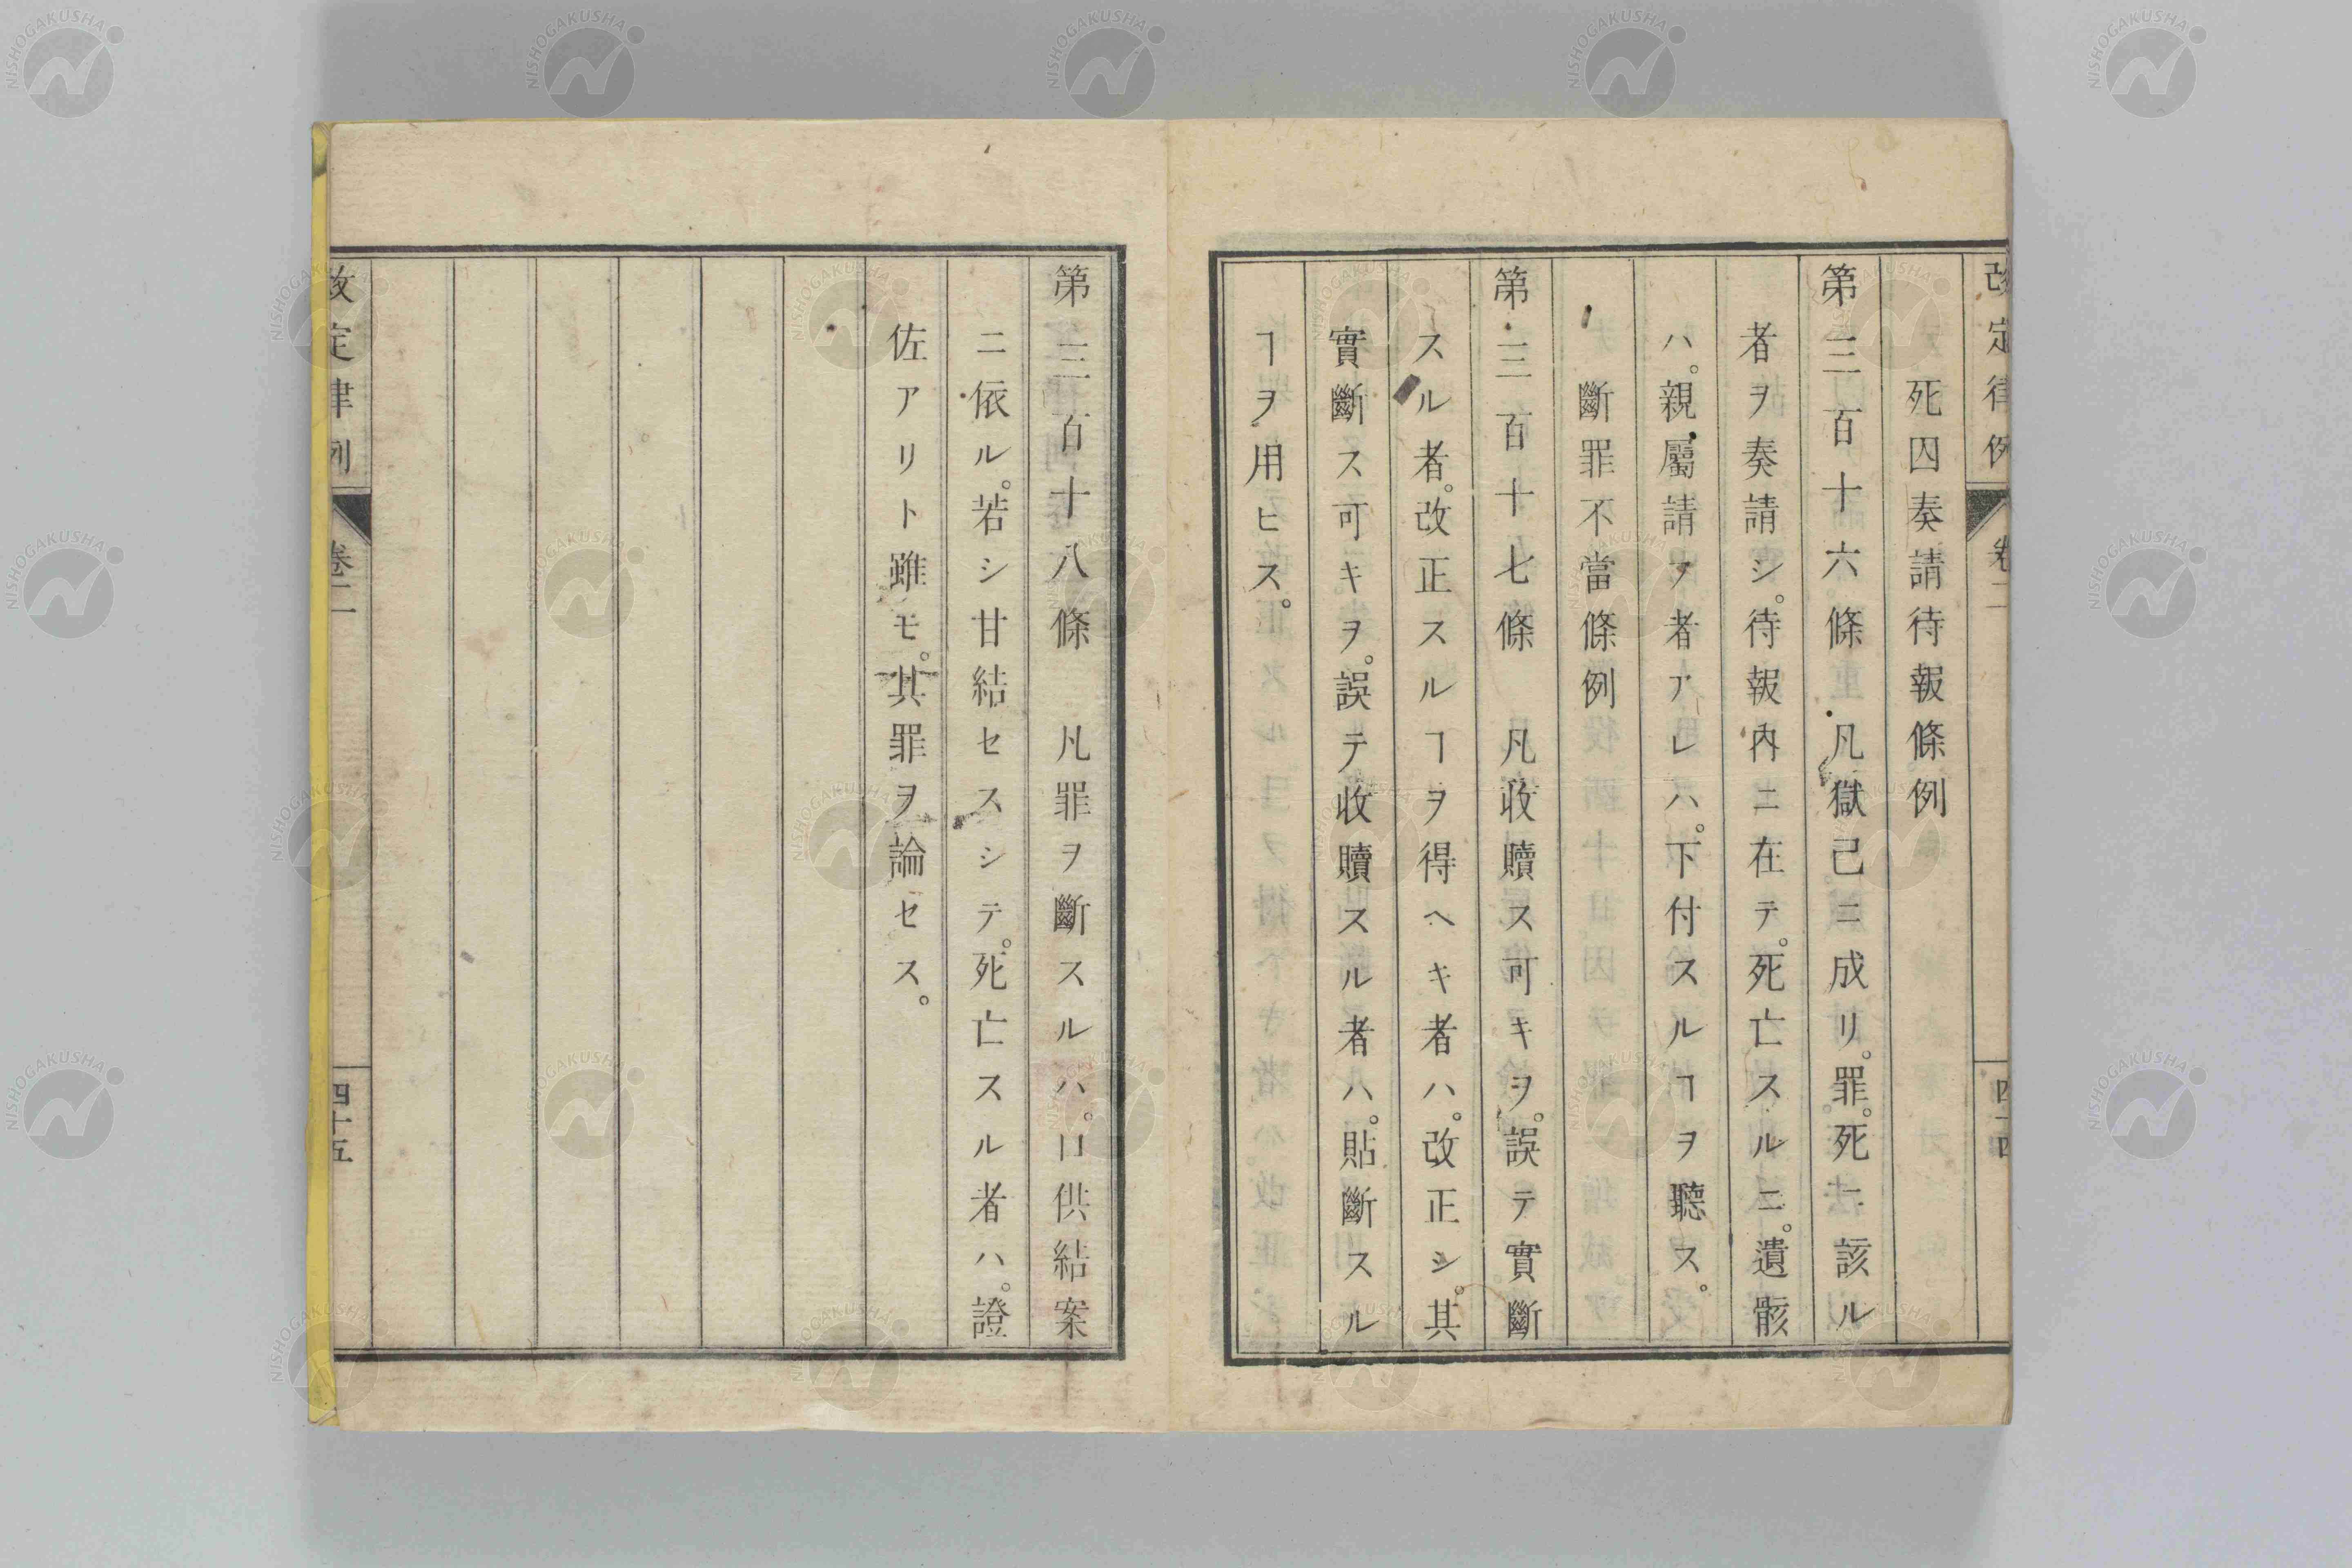 改定律例 卷二 四十四
死囚奏請待報條例
第三百十六條 凡獄已ニ成リ。罪。死ニ該ル
者ヲ奏請シ。待報內ニ在テ。死亡スルニ。遺骸
ハ。親屬請フ者アレハ。下付スルヿヲ聽ス。
斷罪不當條例
第三百十七條 凡收贖ス可キヲ。誤テ實斷
スル者。改正スルヿヲ得ヘキ者ハ。改正シ。其
實斷ス可キヲ。誤テ收贖スル者ハ。貼斷スル
ヿヲ用ヒス。
第三百十八條 凡罪ヲ斷スルハ。口供結案
ニ依ル。若シ甘結セスシテ。死亡スル者ハ。證
佐アリト雖モ。其罪ヲ論セス。
改定律例 卷二 四十五
NISHOGAKUSHA